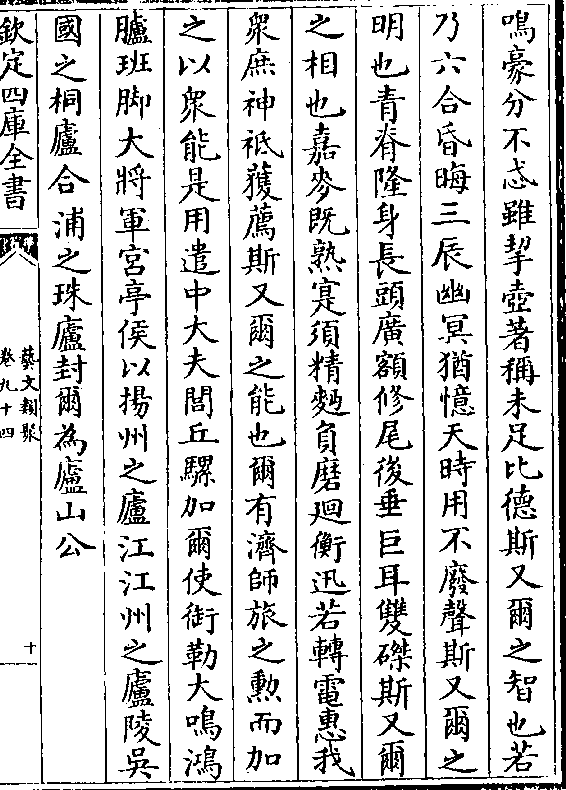 鳴豪分不忒雖挈壺著稱未足比德斯又爾之智也若
乃六合昏晦三辰幽冥猶憶天時用不廢聲斯又爾之
明也青脊隆身長頭廣額修尾後垂巨耳雙磔斯又爾
之相也嘉麥既熟寔須精麪負磨廻衡迅若轉電惠我
衆庶神祇獲薦斯又爾之能也爾有濟師旅之勲而加
之以衆能是用遣中大夫閭丘騾加爾使銜勒大鴻
臚班脚大將軍宮亭侯以揚州之廬江江州之廬陵吳
國之桐廬合浦之珠廬封爾為廬山公
欽定四庫全書
藝文類聚
卷九十四
十